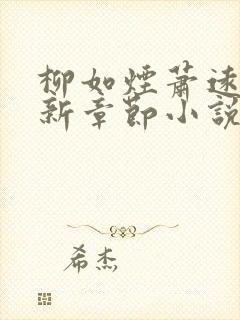 柳如煙蕭遠
新章節小說
希杰